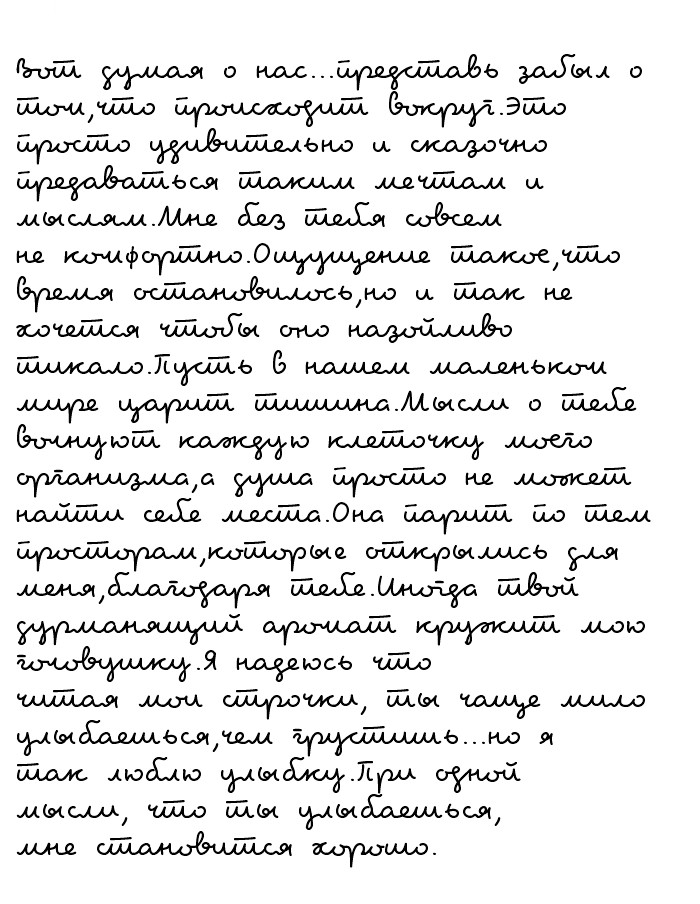 Вот думая о нас...представь забыл о
том,что происходит вокруг.Это
просто удивительно и сказочно
предаваться таким мечтам и
мыслям.Мне без тебя совсем
не комфортно.Ощущение такое,что
время остановилось,но и так не
хочется чтобы оно назойливо
тикало.Пусть в нашем маленьком
мире царит тишина.Мысли о тебе
волнуют каждую клеточку моего
организма,а душа просто не может
найти себе места.Она парит по тем
просторам,которые открылись для
меня,благодаря тебе.Иногда твой
дурманящий аромат кружит мою
головушку.Я надеюсь что
читая мои строчки, ты чаще мило
улыбаешься,чем грустишь...но я
так люблю улыбку.При одной
мысли, что ты улыбаешься,
мне становится хорошо.